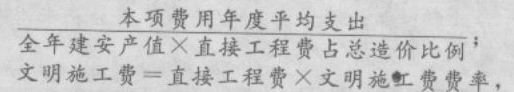 本项费用年度平均支出
全年建安产值×直接工程费占总造价比例；
文明施工费＝直接工程费×文明施工费费率，